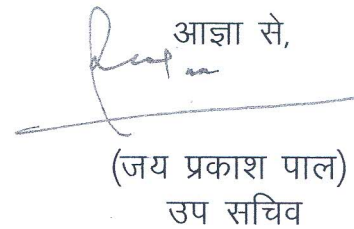 आज्ञा से,
(जय प्रकाश पाल)
उप सचिव